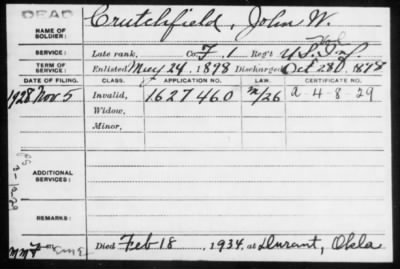 DEAD
NAME OF SOLDIER: Crutchfield, John W.
SERVICE: Late rank, Co. F, 1 Reg't U.S. Vol. Inf.
TERM OF SERVICE: Enlisted May 24, 1898 Discharged Oct 28, 1898
DATE OF FILING. CLASS. APPLICATION NO. LAW. CERTIFICATE NO.
1928 Nov 5 Invalid, 1627460 a-4-8-29
Widow,
Minor,
ADDITIONAL SERVICES:
REMARKS:
Died Feb 18, 1934, at Durant, Okla